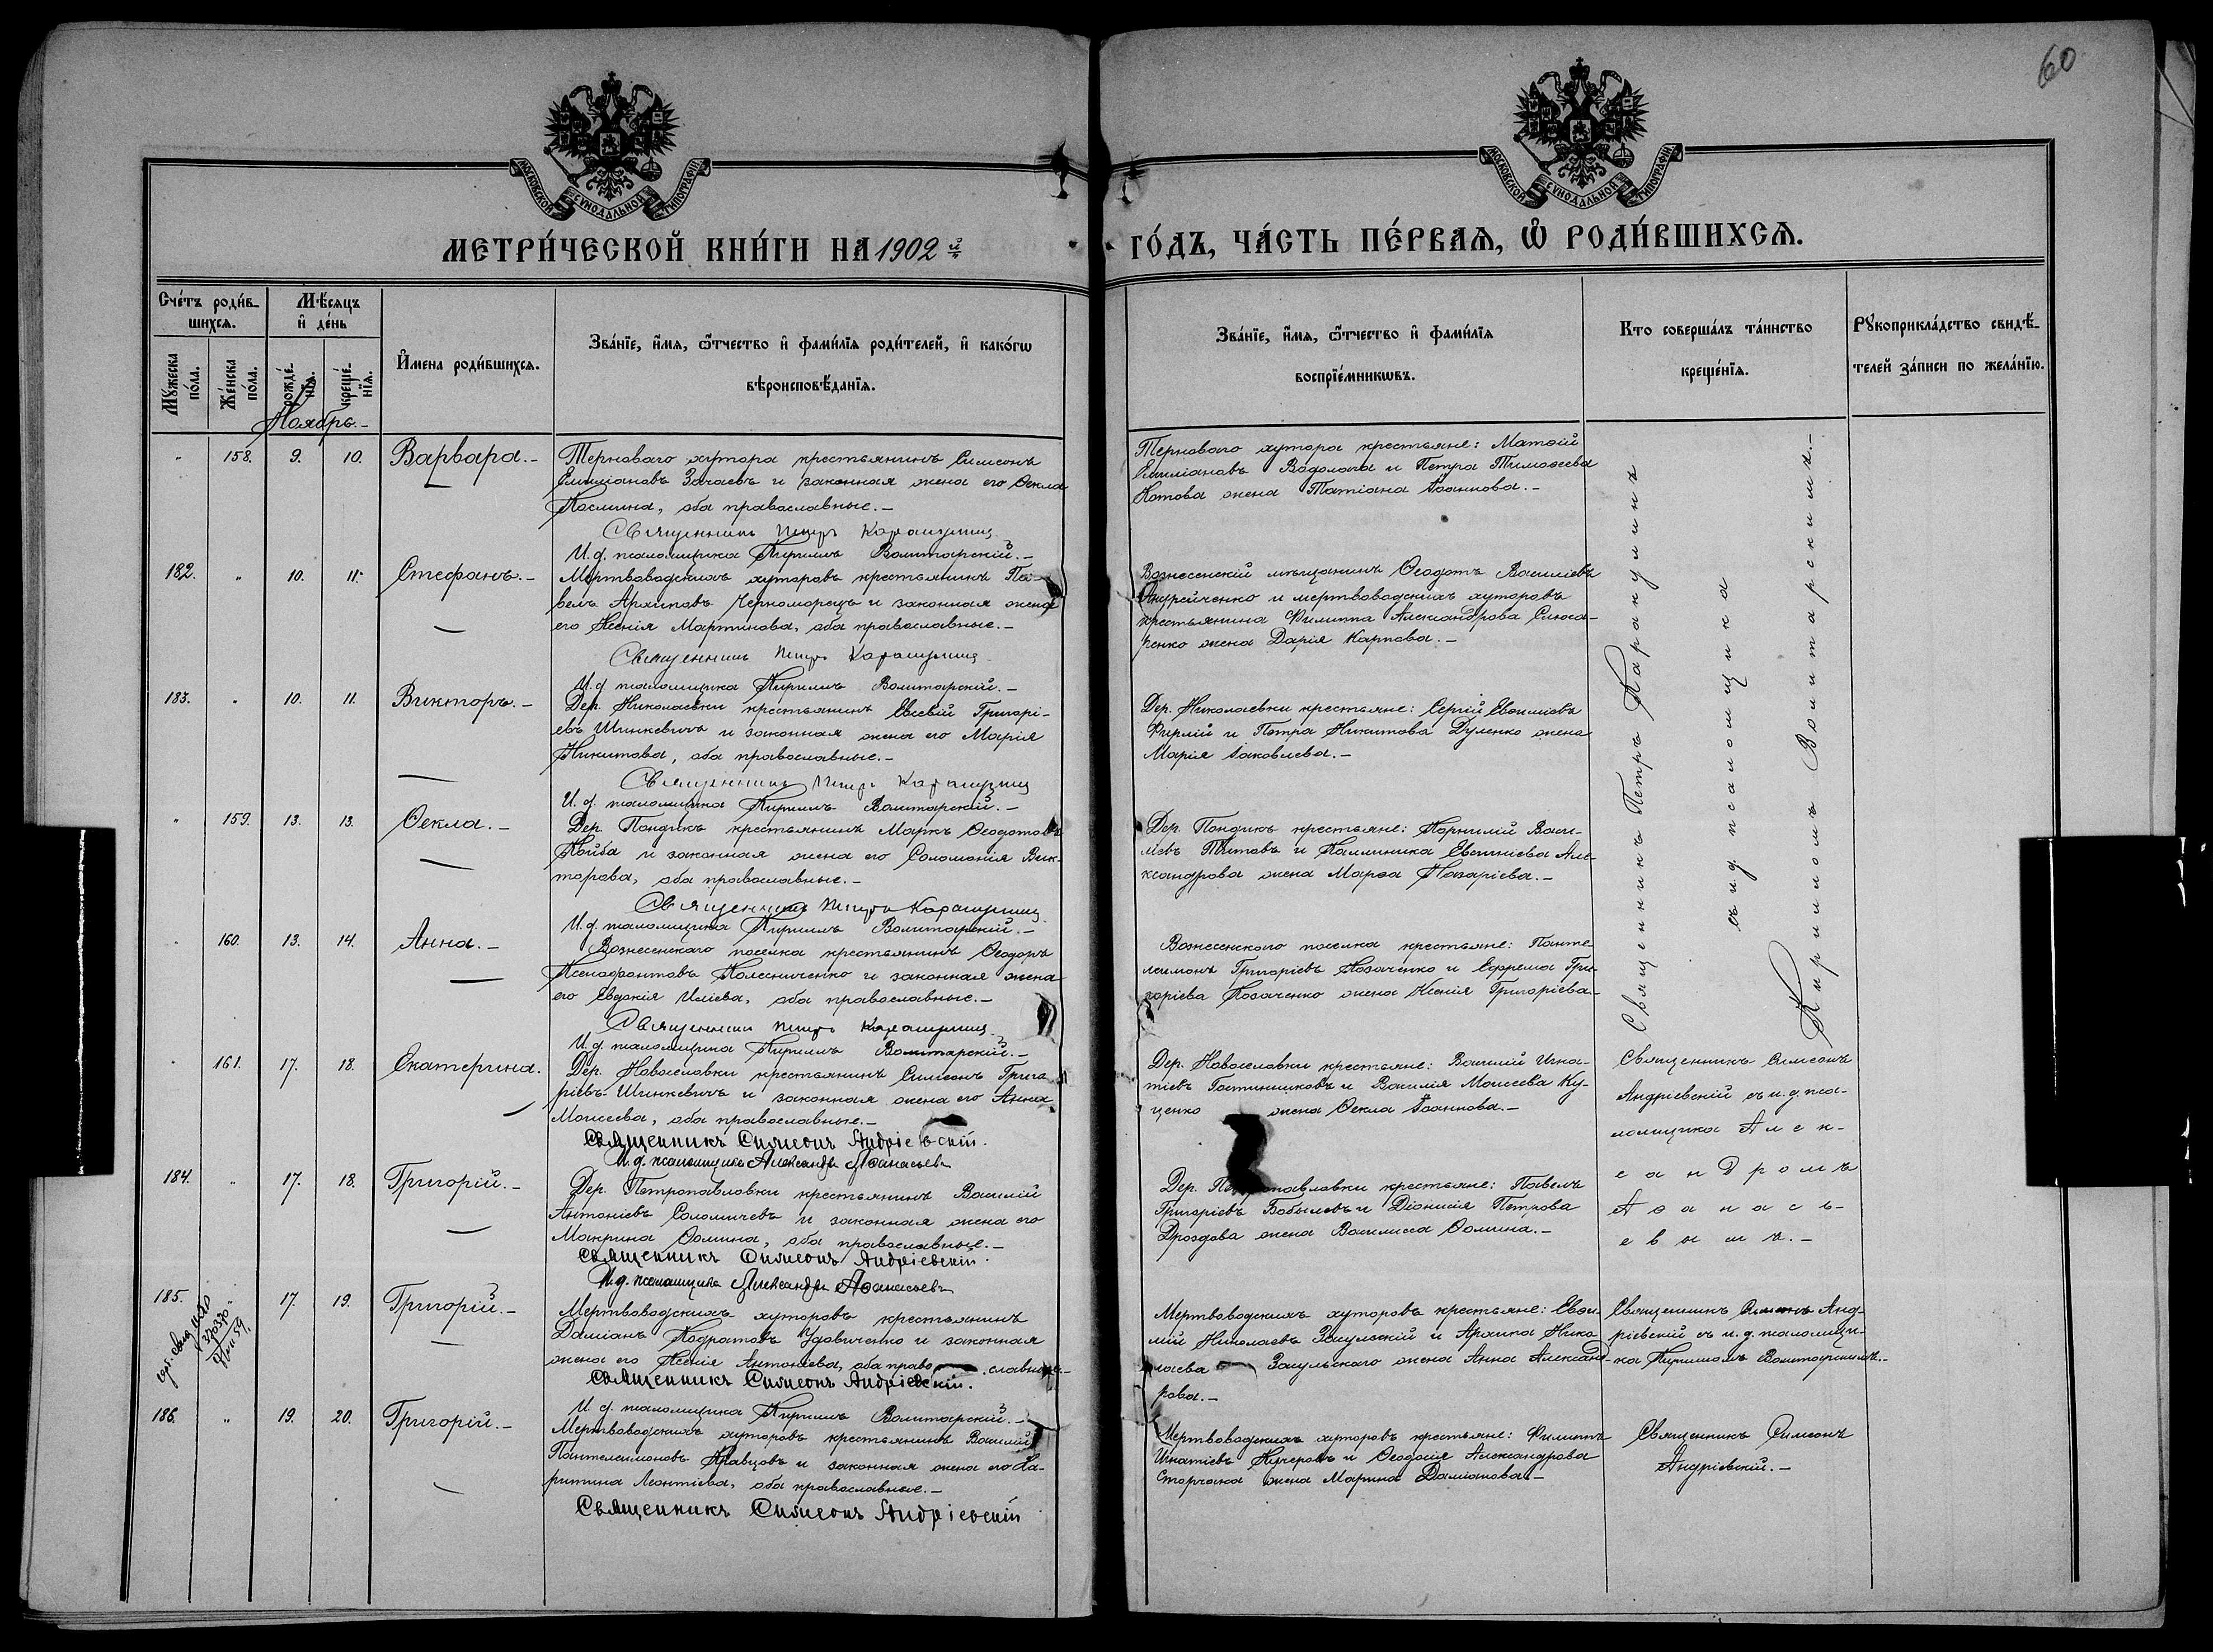 60
МОСКОВСКОЙ СѴНОДАЛЬНОЙ ТИПОГРАФІИ
МОСКОВСКОЙ СѴНОДАЛЬНОЙ ТИПОГРАФІИ
МЕТРИ́ЧЕСКОЙ КНИ́ГИ НА 1902 й
ГО́ДЪ, ЧА́СТЬ ПЕ́РВАѦ, Ѡ҆ РОДИ́ВШИХСѦ.
Сче́тъ роди́в-
шихсѧ.
Мѣ́сяцъ
и҆ де́нь
Мꙋ́жеска
по́ла.
Же́нска
по́ла.
рожде́-
нїѧ.
креще́-
нїѧ.
И҆мена роди́вшихсѧ.
Зва́нїе, и҆́мѧ, ѻ҆́тчество и҆ фами́лїѧ роди́телей, и҆ како́гѡ
вѣроисповѣ́данїѧ.
Зва́нїе, и҆́мѧ, ѻ҆́тчество и҆ фами́лїѧ
воспрїе́мникѡвъ.
Кто соверша́лъ та́инство
креще́нїѧ.
Рꙋкоприкла́дство свидѣ́-
телей за́писи по жела́нїю.
Ноябрь.-
" 158. 9. 10. Варвара.-
Терноваго хутора крестьянинъ Симеонъ
Емиліановъ Зачаевъ и законная жена его Ѳекла
Космина, оба православные.-
Священникъ Петръ Каракулинъ
И. д. псаломщика Кириллъ Волитарскій.-
Терноваго хутора крестьяне: Матѳій
Емиліановъ Водолага и Петра Тимоѳеева
Котова жена Татіана Іоаннова.-
182. " 10. 11. Стефанъ.-
Мертвоводскихъ хуторовъ крестьянинъ Па-
велъ Архиповъ Черноморецъ и законная жена
его Ксенія Мартинова, оба православные.-
Священникъ Петръ Каракулинъ
И. д. псаломщика Кириллъ Волитарскій.-
Вознесенскій мѣщанинъ Ѳеодотъ Василіевъ
Андрейченко и мертвоводскихъ хуторовъ
крестьянина Филиппа Александрова Слюса-
ренко жена Дарія Карпова.-
183. " 10. 11. Викторъ.-
Дер. Николаевки крестьянинъ Евсевій Григорі-
евъ Шинкевичъ и законная жена его Марія
Никитова, оба православные.-
Священникъ Петръ Каракулинъ
И. д. псаломщика Кириллъ Волитарскій.-
Дер. Николаевки крестьяне: Сергій Евѳиміевъ
Фирлій и Петра Никитова Дуленко жена
Марія Іаковлева.-
" 159. 13. 13. Ѳекла.-
Дер. Пондикъ крестьянинъ Маркъ Ѳеодотовъ
Койба и законная жена его Соломонія Вик-
торова, оба православные.-
Священникъ Петръ Каракулинъ
И. д. псаломщика Кириллъ Волитарскій.-
Дер. Пондикъ крестьяне: Корнилій Васи-
ліевъ Титовъ и Каллиника Евѳиміева Але-
ксандрова жена Марѳа Назаріева.-
" 160. 13. 14. Анна.-
Вознесенскаго поселка крестьянинъ Ѳеодоръ
Ксенофонтовъ Колесниченко и законная жена
его Евдокія Иліева, оба православные.-
Священникъ Петръ Каракулинъ
И. д. псаломщика Кириллъ Волитарскій.-
Вознесенскаго поселка крестьяне: Панте-
леимонъ Григоріевъ Козаченко и Ефрема Гри-
горіева Козаченко жена Ксенія Григоріева.-
Священникъ Петръ Каракулинъ
съ и. д. псаломщика
Кирилломъ Волитарскимъ.-
" 161. 17. 18. Екатерина.
Дер. Новоселовки крестьянинъ Симеонъ Григо-
ріевъ Шинкевичъ и законная жена его Анна
Моисеева, оба православные.-
Священникъ Симеонъ Андріевскій.
И. д. псаломщика Александръ Аѳанасьевъ
Дер. Новоселовки крестьяне: Василій Игна-
тіевъ Гостинниковъ и Василія Моисеева Ку-
ценко жена Ѳекла Іоаннова.-
Священникъ Симеонъ
Андріевскій съ и. д. пса-
ломщика Алек-
сандромъ
Аѳанась-
евымъ.-
184. " 17. 18. Григорій.-
Дер. Петропавловки крестьянинъ Василій
Антоніевъ Соломичевъ и законная жена его
Макрина Ѳомина, оба православные.-
Священникъ Симеонъ Андріевскій.
И. д. псаломщика Александръ Аѳанасьевъ
Дер. Петропавловки крестьяне: Павелъ
Григоріевъ Бобылевъ и Діонисія Петрова
Дроздова жена Василисса Ѳомина.-
185. " 17. 19. Григорій.-
Мертвоводскихъ хуторовъ крестьянинъ
Даміанъ Кодратовъ Удовиченко и законная
жена его Ксенія Антоніева, оба право славные.-
Священникъ Симеонъ Андріевскій.
И. д. псаломщика Кириллъ Волитарскій.-
Мертвоводскихъ хуторовъ крестьяне: Евѳи-
мій Николаевъ Загульскій и Архипа Нико-
лаева Загульскаго жена Анна Александ-
рова.-
Священникъ Симеонъ Анд-
ріевскій съ и. д. псаломщи-
ка Кирилломъ Волитарскимъ.-
186. " 19. 20. Григорій.-
Мертвоводскихъ хуторовъ крестьянинъ Василій
Пантелеимоновъ Кравцовъ и законная жена его Ха-
ритина Леонтіева, оба православные.-
Священникъ Симеонъ Андріевскій
Мертвоводскихъ хуторовъ крестьяне: Филиппъ
Игнатіевъ Кучеровъ и Ѳеодосія Александрова
Сторчака жена Марина Даміанова.-
Священникъ Симеонъ
Андріевскій.-